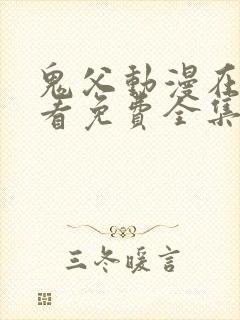 鬼父動漫在
看免費全集
三冬暖言